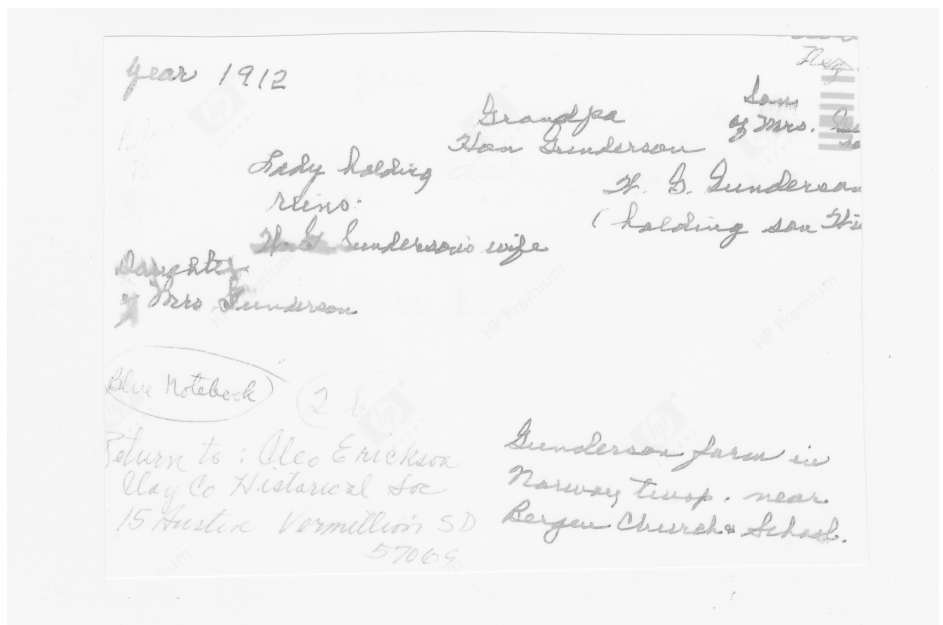 year 1912
Neg
Grandpa
Han Gunderson
Son
of Mrs.
Lady holding
reins.
H. G. Gunderson
(holding son
H. G. Gunderson's wife
Daughter
of Mrs Gunderson
Blue Notebook
2
Return to: Cleo Erickson
Clay Co Historical Soc
15 Austin Vermillion SD
57069
Gunderson farm in
Norway twsp. near
Bergen Church & School.
hp
HP Premium
HP Premium